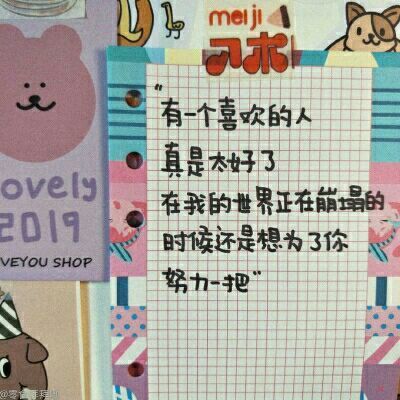 meiji
アポロ
"有一个喜欢的人
真是太好了
在我的世界正在崩塌的
时候还是想为了你
努力一把"
lovely
2019
VEYOU SHOP